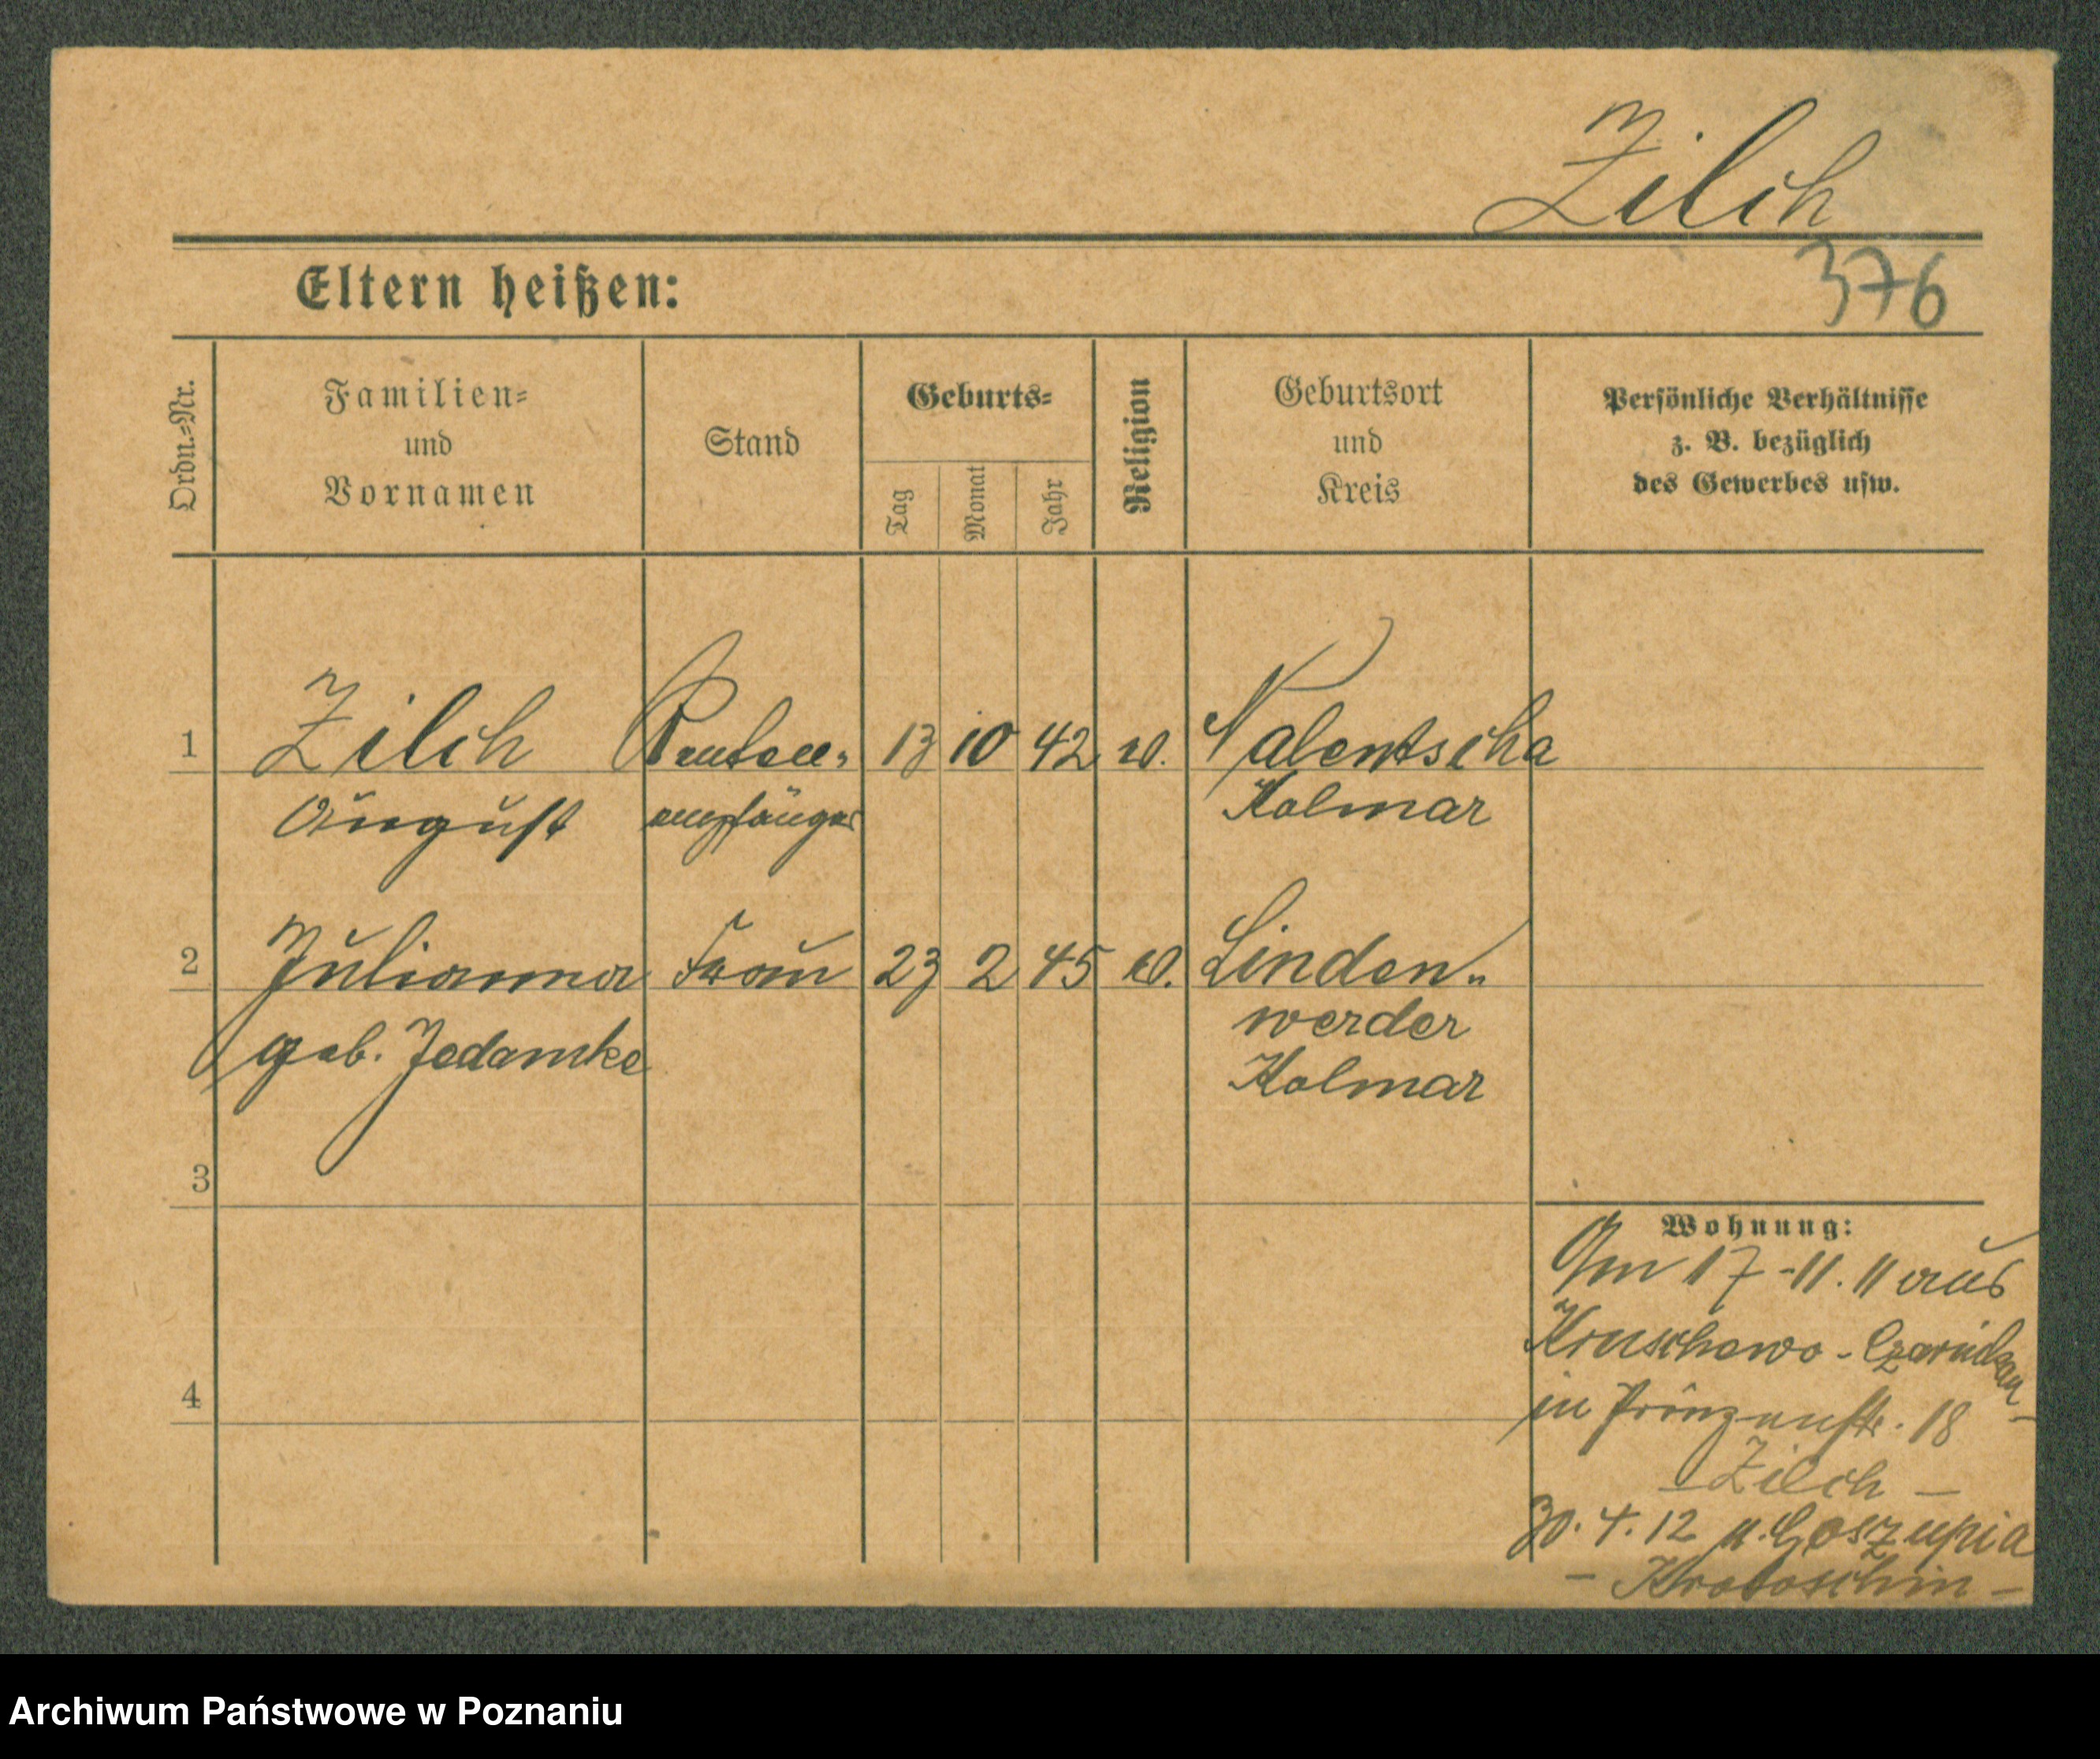 Zilch
Eltern heißen:
376
Ordn.-Nr.
Familien-
und
Vornamen
Stand
Geburts-
Tag
Monat
Jahr
Religion
Geburtsort
und
Kreis
Persönliche Verhältnisse
z. B. bezüglich
des Gewerbes usw.
1 Zilch Renten- 13 10 42 ev. Nalentscha
August empfänger Kolmar
2 Julianna Frau 23 2 45 ev. Linden-
werder
geb. Jedamke Kolmar
3
4
Wohnung:
Am 17-11.11 aus
Kruschewo - Czarnikau -
in Prinzenstr. 18
- Zilch -
30.4.12 n.
- Krotoschin -
Archiwum Państwowe w Poznaniu